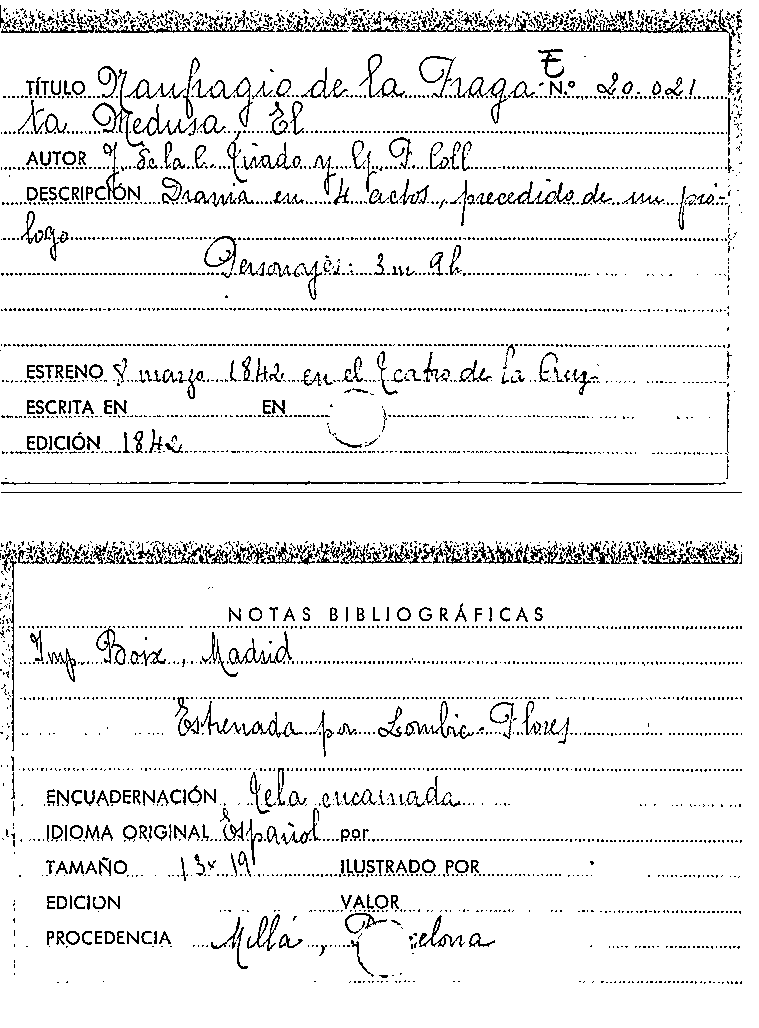 TÍTULO Naufragio de la Fraga- E N.º 20.021
ta Medusa, El
AUTOR J. de la C. Tirado y G. F. Coll
DESCRIPCIÓN Drama en 4 actos, precedido de un pró-
logo
Personajes: 3 m 9 h
ESTRENO 8 marzo 1842 en el Teatro de la Cruz
ESCRITA EN EN
EDICIÓN 1842
NOTAS BIBLIOGRÁFICAS
Imp. Boix, Madrid
Estrenada por Lombía-Flores
ENCUADERNACIÓN Tela encarnada
IDIOMA ORIGINAL Español por
TAMAÑO 13x19 ILUSTRADO POR
EDICION VALOR
PROCEDENCIA Millá, B elona